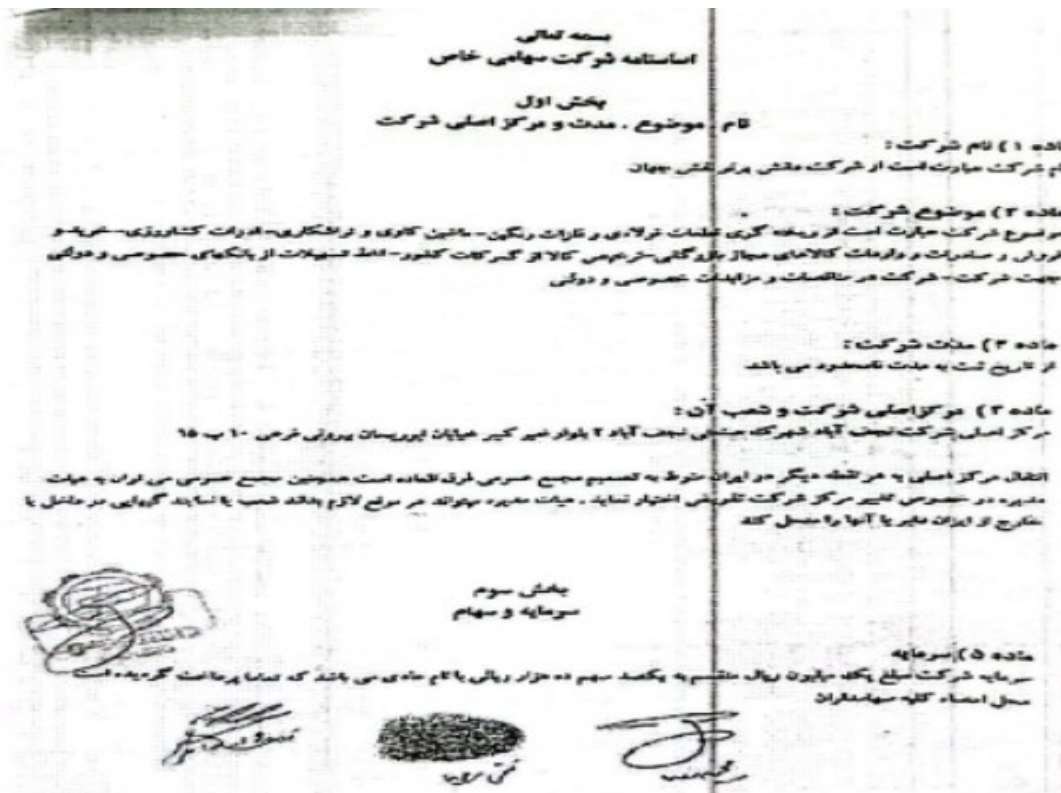 بسمه تعالی
اساسنامه شرکت سهامی خاص
بخش اول
نام . موضوع . مدت و مرکز اصلی شرکت
ماده ۱ ) نام شرکت :
نام شرکت عبارت است از شرکت دانش برتر نقش جهان
ماده ۲ ) موضوع شرکت :
موضوع شرکت عبارت است از ریخته گری قطعات فولادی و فلزات رنگین - ماشین کاری و تراشکاری - ادوات کشاورزی - خرید و
فروش و صادرات و واردات کالاهای مجاز بازرگانی - ترخیص کالا از گمرکات کشور - اخذ تسهیلات از بانکهای خصوصی و دولتی
جهت شرکت - شرکت در مناقصات و مزایدات خصوصی و دولتی
ماده ۳ ) مدت شرکت :
از تاریخ ثبت به مدت نامحدود می باشد
ماده ۴ ) مرکز اصلی شرکت و شعب آن :
مرکز اصلی شرکت نجف آباد شهرک صنعتی نجف آباد ۲ بلوار امیر کبیر خیابان ابوریحان بیرونی فرعی ۱۰ پ ۱۵
انتقال مرکز اصلی به هر نقطه دیگر در ایران منوط به تصمیم مجمع عمومی فوق العاده است همچنین مجمع عمومی می تواند به هیات
مدیره در خصوص تغییر مرکز شرکت تفویض اختیار نماید . هیات مدیره میتواند هر موقع لازم بداند شعب یا نمایندگیهایی در داخل یا
خارج از ایران دایر یا آنها را منحل کند
بخش سوم
سرمایه و سهام
ماده ۵ ) سرمایه
سرمایه شرکت مبلغ یک میلیون ریال منقسم به یکصد سهم ده هزار ریالی با نام عادی می باشد که تماما پرداخت گردیده است
محل امضاء کلیه سهامداران